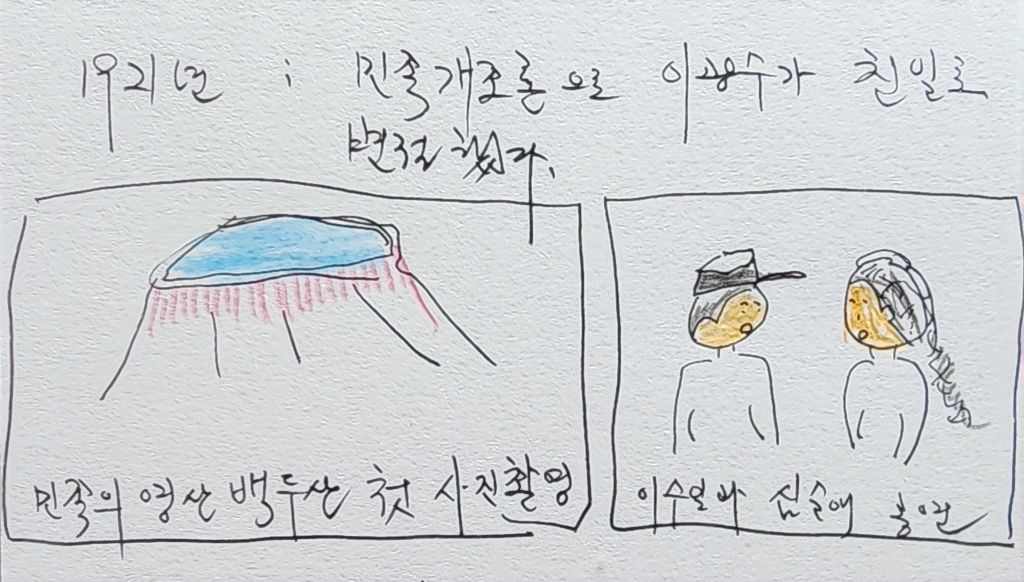 1921년 : 민족개조론으로 이광수가 친일로
변절했다.
민족의 영산 백두산 첫 사진촬영
이수일과 심순애 출연